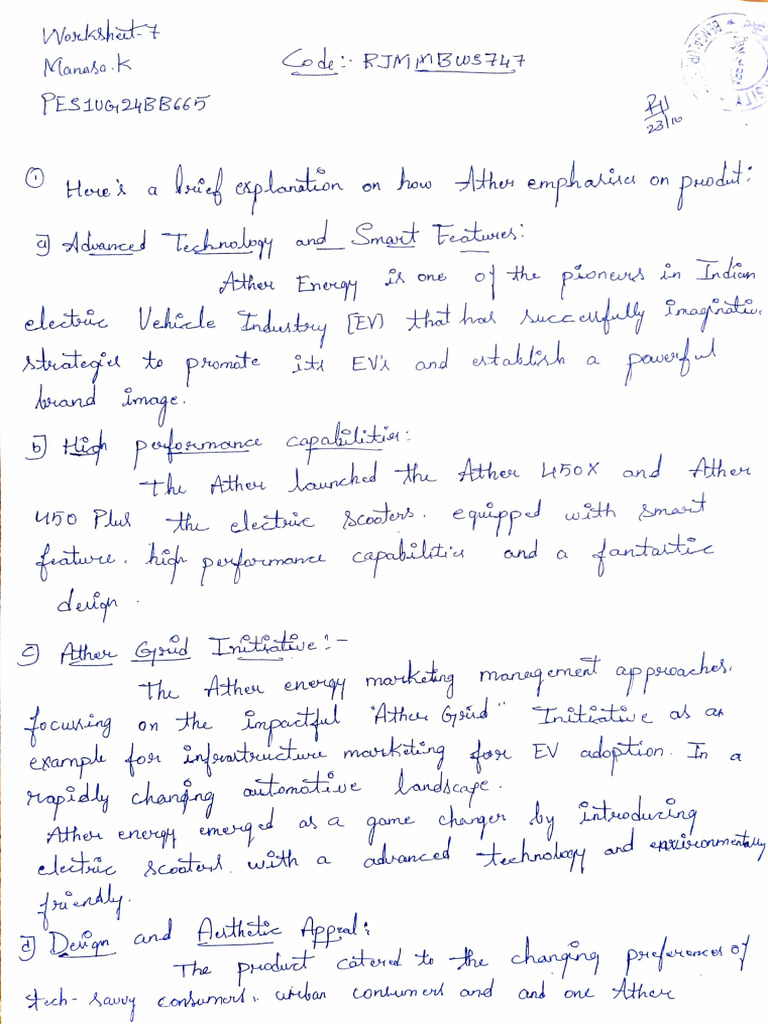 Worksheet-7
Manasa.K
Code:- RJMMMBWS747
PES1UG24BB665
23/10
① Here's a brief explanation on how Ather emphasises on produt:
a) Advanced Technology and Smart Features:
Ather Energy is one of the pioneers in Indian
electric Vehicle Industry [EV] that has successfully imaginative
strategies to promote its EV's and establish a powerful
brand image.
b) High performance capabilities:
The Ather launched the Ather 450X and Ather
450 Plus the electric scooters. equipped with smart
feature. high performance capabilities and a fantastic
design.
c) Ather Grid Initiative:-
The Ather energy marketing management approaches.
focussing on the impactful "Ather Grid" Initiative as an
example for infrastructure marketing for EV adoption. In a
rapidly changing automotive landscape.
Ather energy emerged as a game changer by introducing
electric scooters with a advanced technology and environmentally
friendly.
d) Design and Aesthetic Appeal:
The product catered to the changing preferences of
tech-savvy consumers. urban consumers and and one Ather